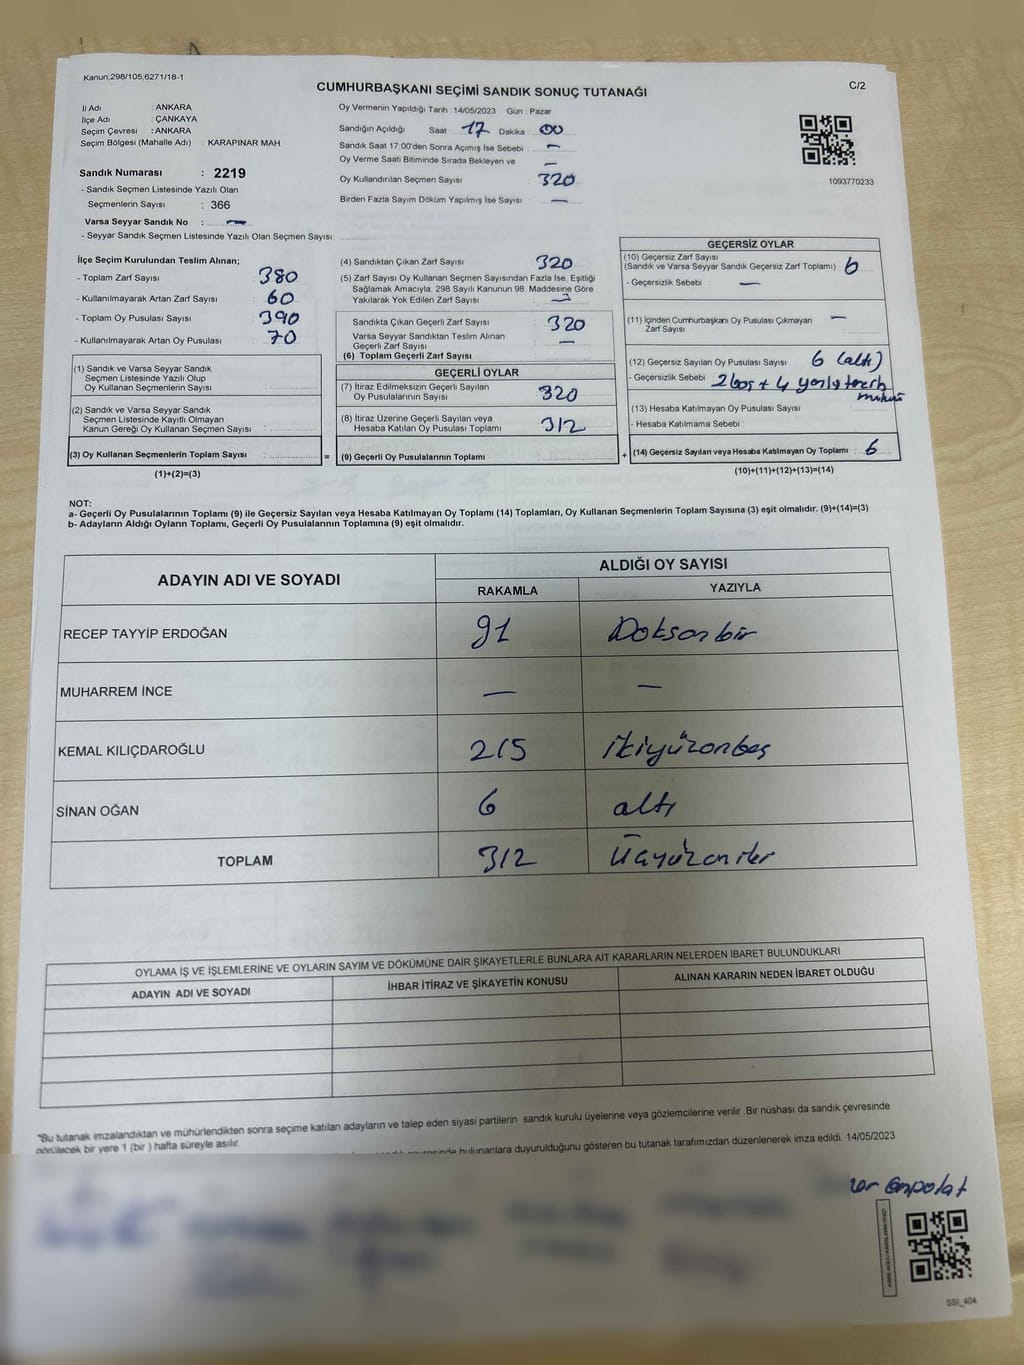 Kanun:298/105,6271/18-1
C/2
CUMHURBAŞKANI SEÇİMİ SANDIK SONUÇ TUTANAĞI
İl Adı : ANKARA
İlçe Adı : ÇANKAYA
Seçim Çevresi : ANKARA
Seçim Bölgesi (Mahalle Adı) : KARAPINAR MAH.
Sandık Numarası : 2219
- Sandık Seçmen Listesinde Yazılı Olan
Seçmenlerin Sayısı : 366
Varsa Seyyar Sandık No : —
- Seyyar Sandık Seçmen Listesinde Yazılı Olan Seçmen Sayısı:
Oy Vermenin Yapıldığı Tarih : 14/05/2023 Gün : Pazar
Sandığın Açıldığı Saat : 17 Dakika : 00
Sandık Saat 17:00'den Sonra Açımış İse Sebebi : —
Oy Verme Saati Bitiminde Sırada Bekleyen ve —
Oy Kullandırılan Seçmen Sayısı : 320
Birden Fazla Sayım Döküm Yapılmış İse Sayısı : —
1093770233
İlçe Seçim Kurulundan Teslim Alınan;
- Toplam Zarf Sayısı : 380
- Kullanılmayarak Artan Zarf Sayısı : 60
- Toplam Oy Pusulası Sayısı : 390
- Kullanılmayarak Artan Oy Pusulası : 70
(1) Sandık ve Varsa Seyyar Sandık
Seçmen Listesinde Yazılı Olup
Oy Kullanan Seçmenlerin Sayısı :
(2) Sandık ve Varsa Seyyar Sandık
Seçmen Listesinde Kayıtlı Olmayan
Kanun Gereği Oy Kullanan Seçmen Sayısı :
(3) Oy Kullanan Seçmenlerin Toplam Sayısı :
(1)+(2)=(3)
=
(4) Sandıktan Çıkan Zarf Sayısı : 320
(5) Zarf Sayısı Oy Kullanan Seçmen Sayısından Fazla İse, Eşitliği
Sağlamak Amacıyla, 298 Sayılı Kanunun 98. Maddesine Göre
Yakılarak Yok Edilen Zarf Sayısı : —
Sandıkta Çıkan Geçerli Zarf Sayısı : 320
Varsa Seyyar Sandıktan Teslim Alınan
Geçerli Zarf Sayısı : —
(6) Toplam Geçerli Zarf Sayısı
GEÇERLİ OYLAR
(7) İtiraz Edilmeksizin Geçerli Sayılan
Oy Pusulalarının Sayısı : 320
(8) İtiraz Üzerine Geçerli Sayılan veya
Hesaba Katılan Oy Pusulası Toplamı : 312
(9) Geçerli Oy Pusulalarının Toplamı :
+
GEÇERSİZ OYLAR
(10) Geçersiz Zarf Sayısı
(Sandık ve Varsa Seyyar Sandık Geçersiz Zarf Toplamı) : 6
- Geçersizlik Sebebi : —
(11) İçinden Cumhurbaşkanı Oy Pusulası Çıkmayan —
Zarf Sayısı :
(12) Geçersiz Sayılan Oy Pusulası Sayısı : 6 (altı)
- Geçersizlik Sebebi : 2 boş + 4 yanlış tercih
(13) Hesaba Katılmayan Oy Pusulası Sayısı :
- Hesaba Katılmama Sebebi :
(14) Geçersiz Sayılan veya Hesaba Katılmayan Oy Toplamı : 6
(10)+(11)+(12)+(13)=(14)
NOT:
a- Geçerli Oy Pusulalarının Toplamı (9) ile Geçersiz Sayılan veya Hesaba Katılmayan Oy Toplamı (14) Toplamları, Oy Kullanan Seçmenlerin Toplam Sayısına (3) eşit olmalıdır. (9)+(14)=(3)
b- Adayların Aldığı Oyların Toplamı, Geçerli Oy Pusulalarının Toplamına (9) eşit olmalıdır.
ADAYIN ADI VE SOYADI ALDIĞI OY SAYISI
RAKAMLA YAZIYLA
RECEP TAYYİP ERDOĞAN 91 Doksanbir
MUHARREM İNCE — —
KEMAL KILIÇDAROĞLU 215 ikiyüzonbeş
SİNAN OĞAN 6 altı
TOPLAM 312 Üçyüzoniki
OYLAMA İŞ VE İŞLEMLERİNE VE OYLARIN SAYIM VE DÖKÜMÜNE DAİR ŞİKAYETLERLE BUNLARA AİT KARARLARIN NELERDEN İBARET BULUNDUKLARI
ADAYIN ADI VE SOYADI İHBAR İTİRAZ VE ŞİKAYETİN KONUSU ALINAN KARARIN NEDEN İBARET OLDUĞU
"Bu tutanak imzalandıktan ve mühürlendikten sonra seçime katılan adayların ve talep eden siyasi partilerin sandık kurulu üyelerine veya gözlemcilerine verilir. Bir nüshası da sandık çevresinde
görülecek bir yere 1 (bir ) hafta süreyle asılır.
bulunanlara duyurulduğunu gösteren bu tutanak tarafımızdan düzenlenerek imza edildi. 14/05/2023
SSI_404